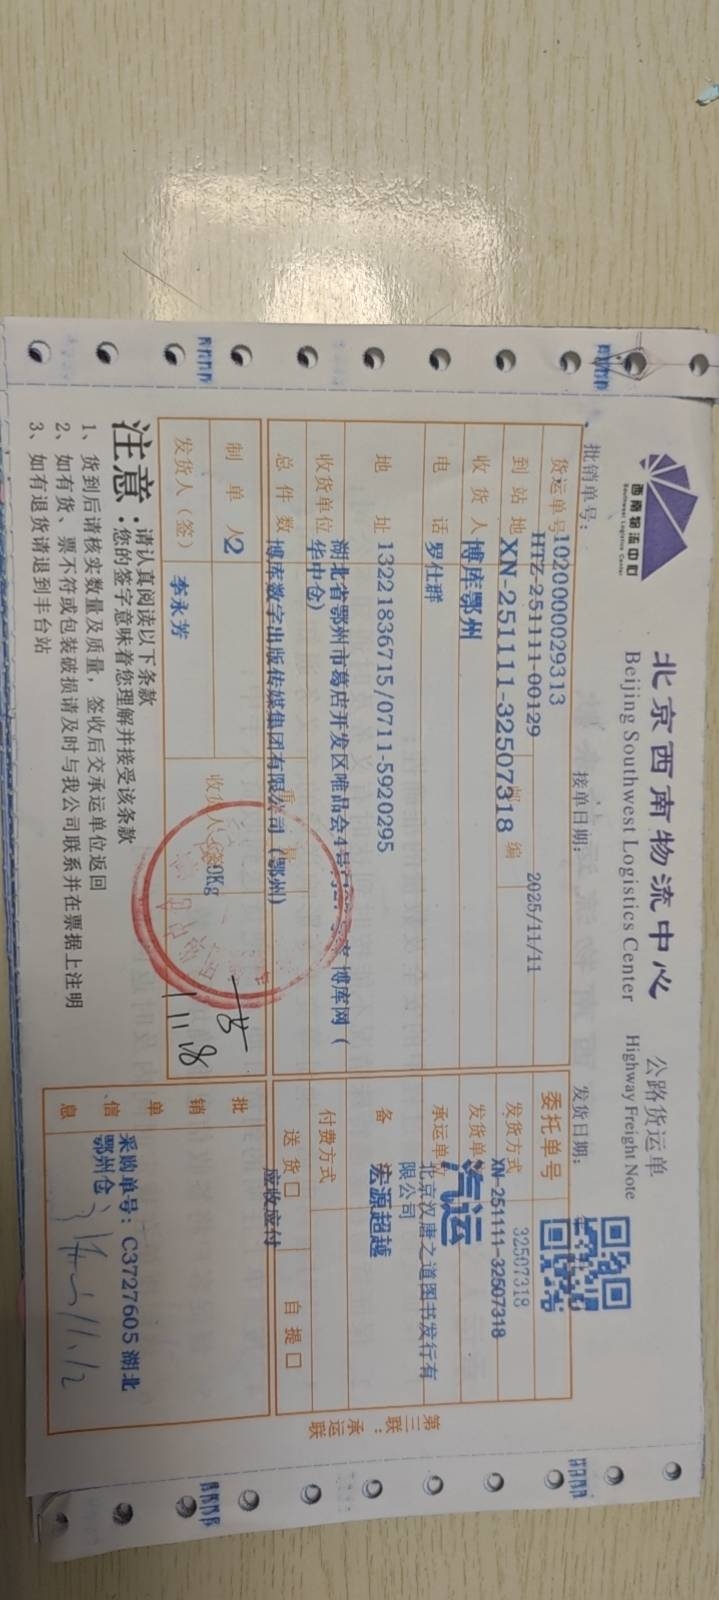 西南物流中心
Southwest Logistics Center
北京西南物流中心
Beijing Southwest Logistics Center
公路货运单
Highway Freight Note
批销单号:
接单日期:
发货日期:
货运单号
1020000029313
HTZ-251111-00129
2025/11/11
委托单号
32507318
到站地
XN-251111-32507318
邮编
发货方式
XN-251111-32507318
收货人
博库鄂州
发货单位
汽运
电话
罗仕群
承运单位
北京汉唐之道图书发行有
限公司
地址
13221836715/0711-5920295
备
宏源超越
收货单位
湖北省鄂州市葛店开发区唯品会4号
博库网(
华中仓)
付费方式
总件数
博库数字出版传媒集团有限公司(鄂州)
重量
送货口
应收应付
自提口
制单人
2
收货人(签)
0Kg
发货人(签)
李永芳
11.18
批销单信息
采购单号:C3727605 湖北
鄂州仓
11.12
第三联:承运联
注意:
请认真阅读以下条款
您的签字意味着您理解并接受该条款
1、货到后请核实数量及质量,签收后交承运单位返回
2、如有货、票不符或包装破损请及时与我公司联系并在票据上注明
3、如有退货请退到丰台站